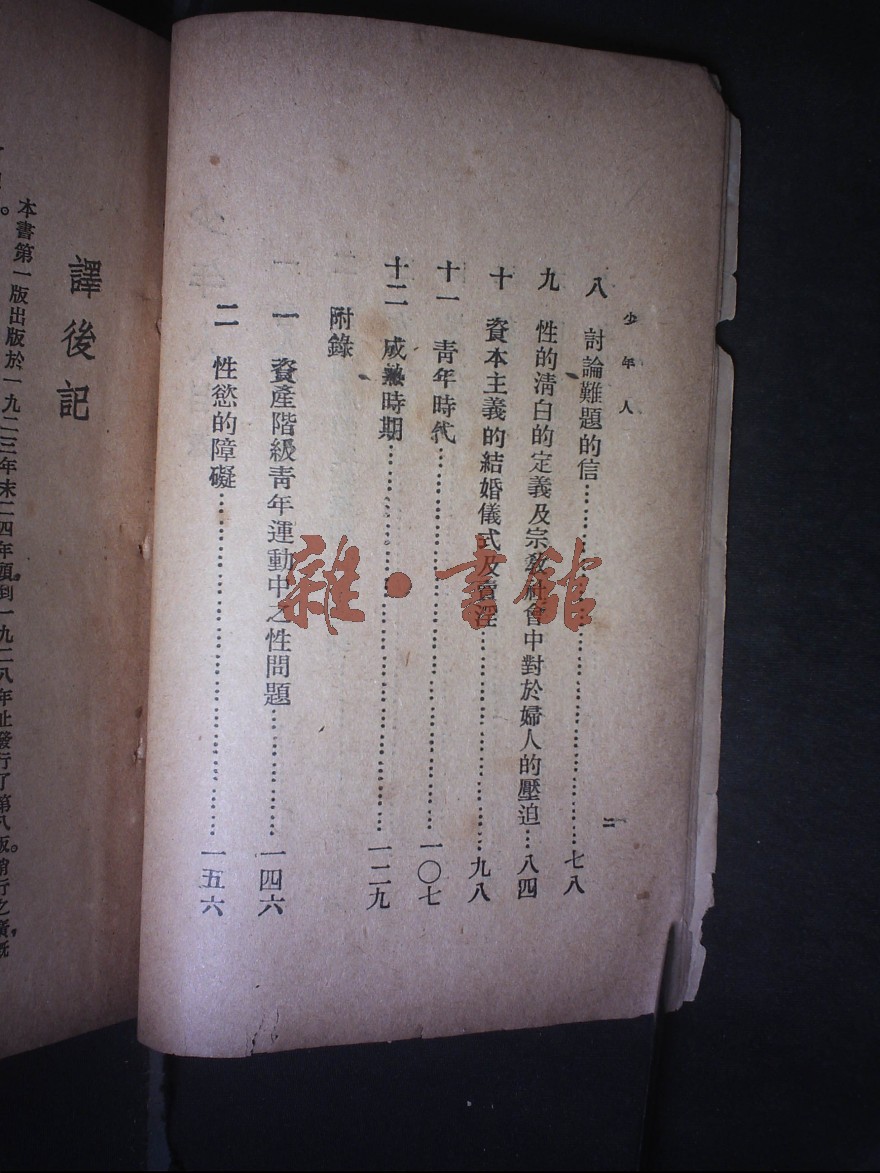 少年人
二
八 討論難題的信……七八
九 性的清白的定義及宗教社會中對於婦人的壓迫…八四
十 資本主義的結婚儀式及賣淫……九八
十一 青年時代……一〇七
十二 成熟時期……一二九
附錄
一 資產階級青年運動中之性問題……一四六
二 性慾的障礙……一五六
譯後記
本書第一版出版於一九二三年末二四年頭，到一九二八年止發行了第八版。銷行之廣，旣
雜·書館